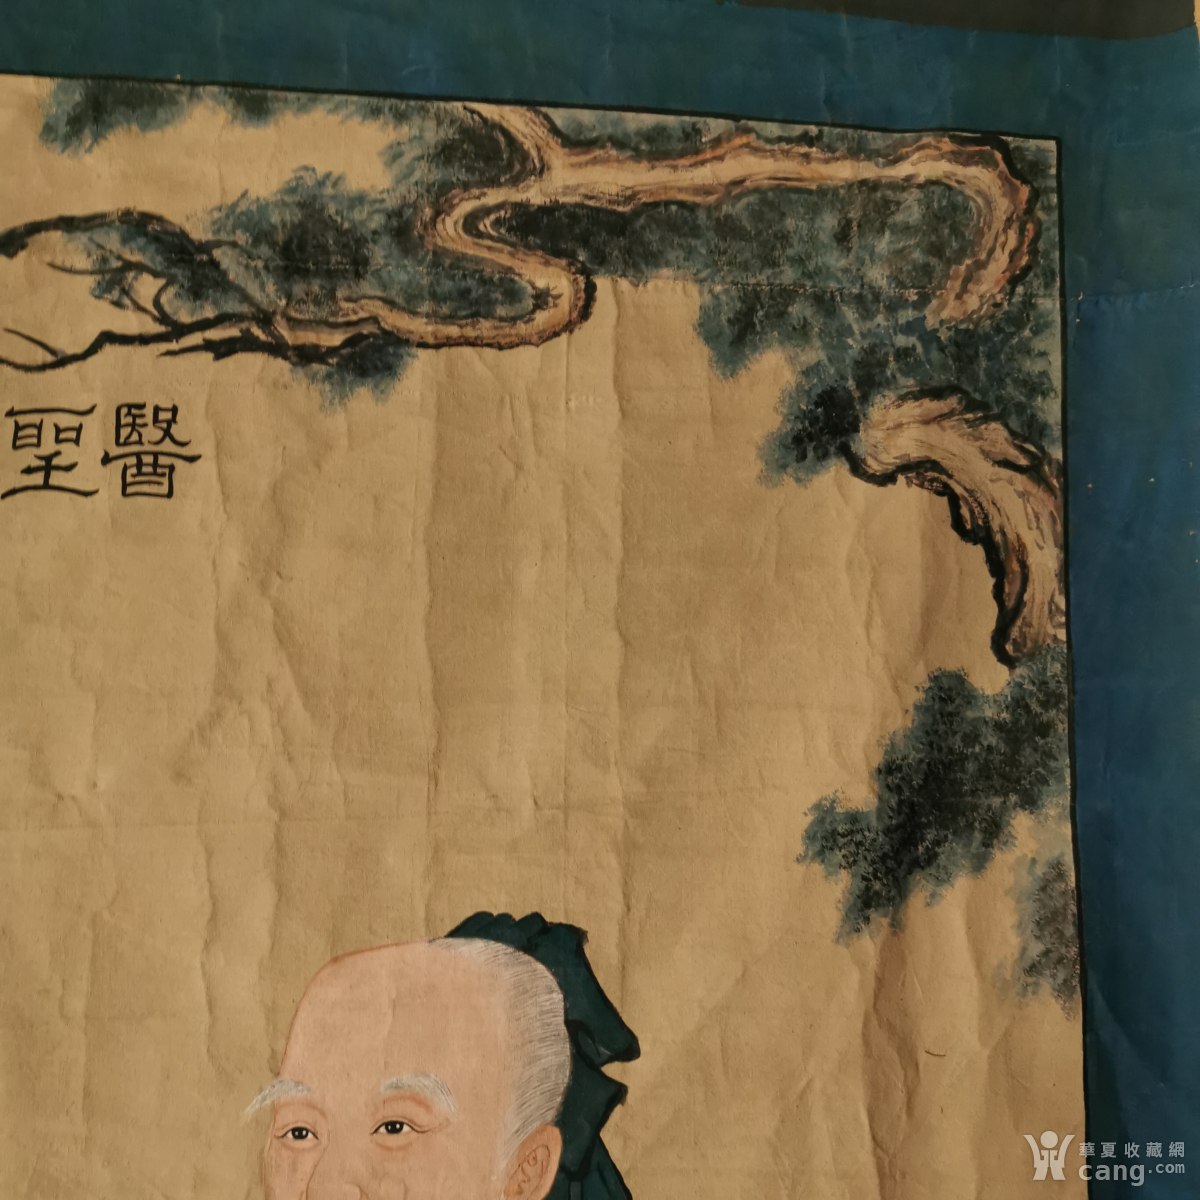 醫聖
華夏收藏網
cang.com